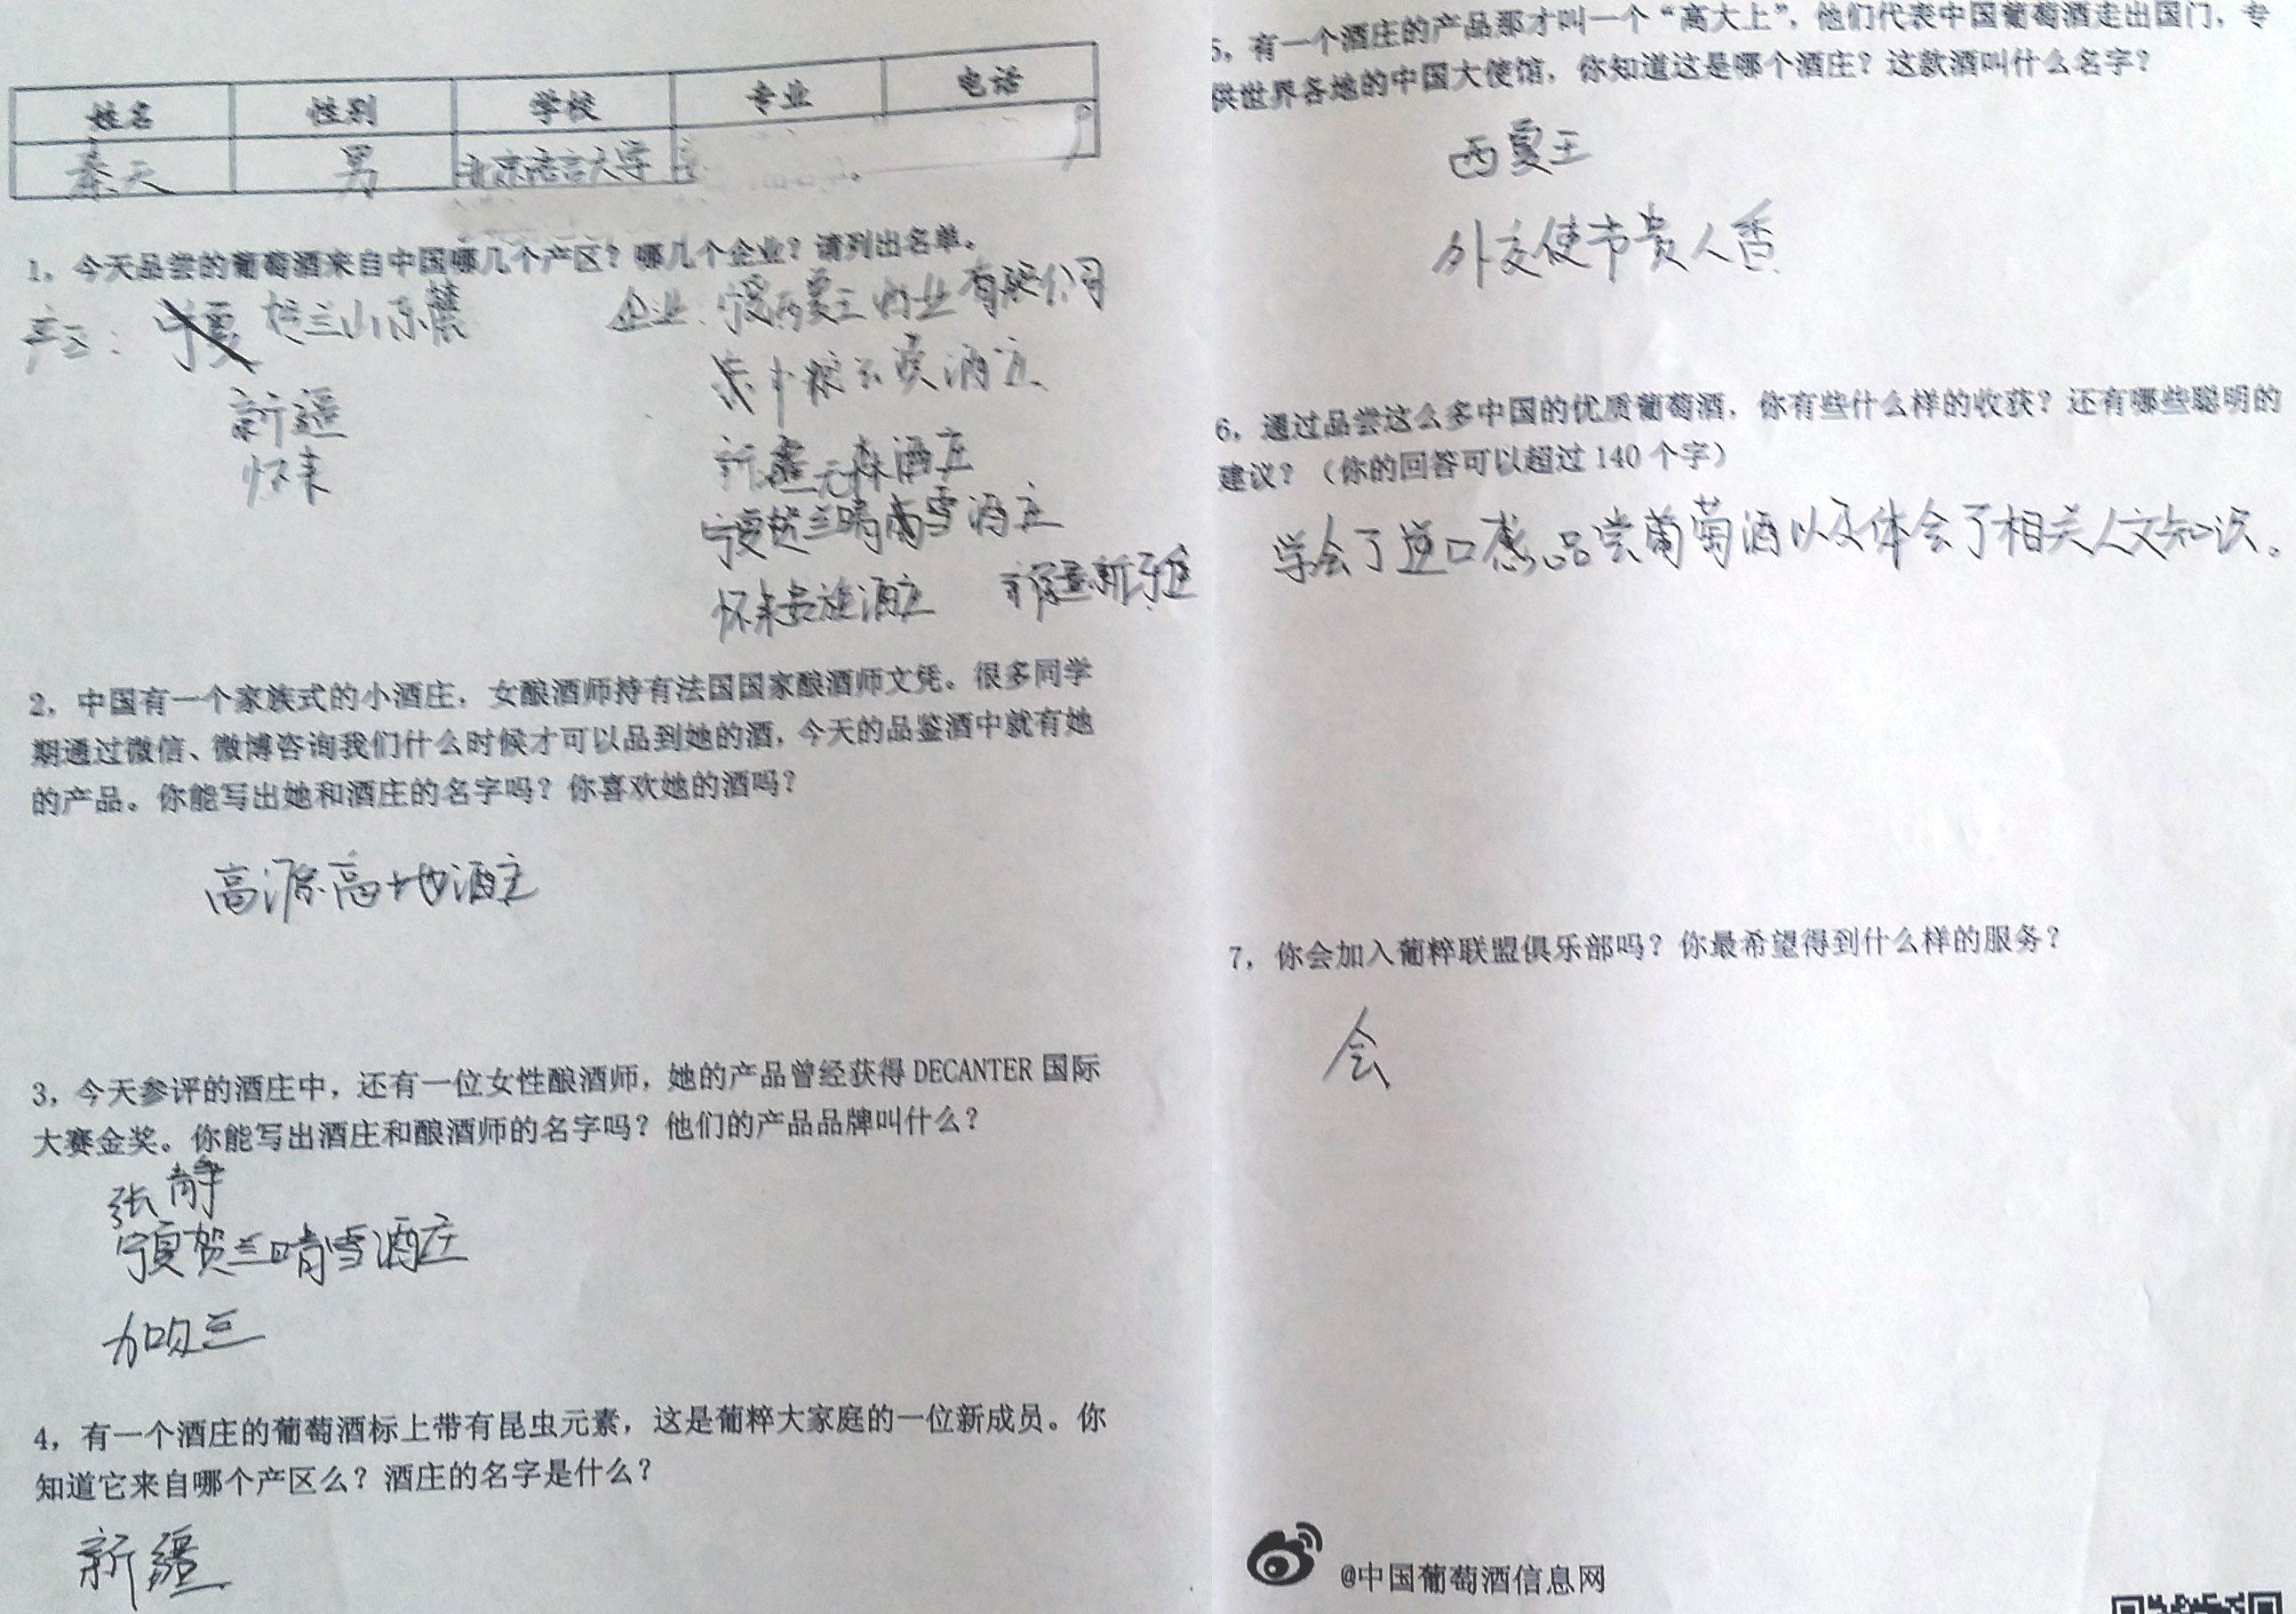 姓名 性别 学校 专业 电话
秦天 男 北京语言大学
1，今天品尝的葡萄酒来自中国哪几个产区？哪几个企业？请列出名单。
产区： 宁夏 贺兰山东麓 企业：宁夏西夏王 业有限公司
新疆 中粮云漠酒庄
怀来 新疆元森酒庄
宁夏贺兰晴雪酒庄
怀来贵族酒庄 新疆新雅
2，中国有一个家族式的小酒庄，女酿酒师持有法国国家酿酒师文凭。很多同学
期通过微信、微博咨询我们什么时候才可以品到她的酒，今天的品鉴酒中就有她
的产品。你能写出她和酒庄的名字吗？你喜欢她的酒吗？
高源高地酒庄
3，今天参评的酒庄中，还有一位女性酿酒师，她的产品曾经获得 DECANTER 国际
大赛金奖。你能写出酒庄和酿酒师的名字吗？他们的产品品牌叫什么？
张静
宁夏贺兰晴雪酒庄
加贝兰
4，有一个酒庄的葡萄酒标上带有昆虫元素，这是葡粹大家庭的一位新成员。你
知道它来自哪个产区么？酒庄的名字是什么？
新疆
5，有一个酒庄的产品那才叫一个“高大上”，他们代表中国葡萄酒走出国门，专
供世界各地的中国大使馆，你知道这是哪个酒庄？这款酒叫什么名字？
西夏王
外交使节贵人香
6，通过品尝这么多中国的优质葡萄酒，你有些什么样的收获？还有哪些聪明的
建议？（你的回答可以超过 140 个字）
学会了逆口感品尝葡萄酒以及体会了相关人文知识。
7，你会加入葡粹联盟俱乐部吗？你最希望得到什么样的服务？
会
@中国葡萄酒信息网